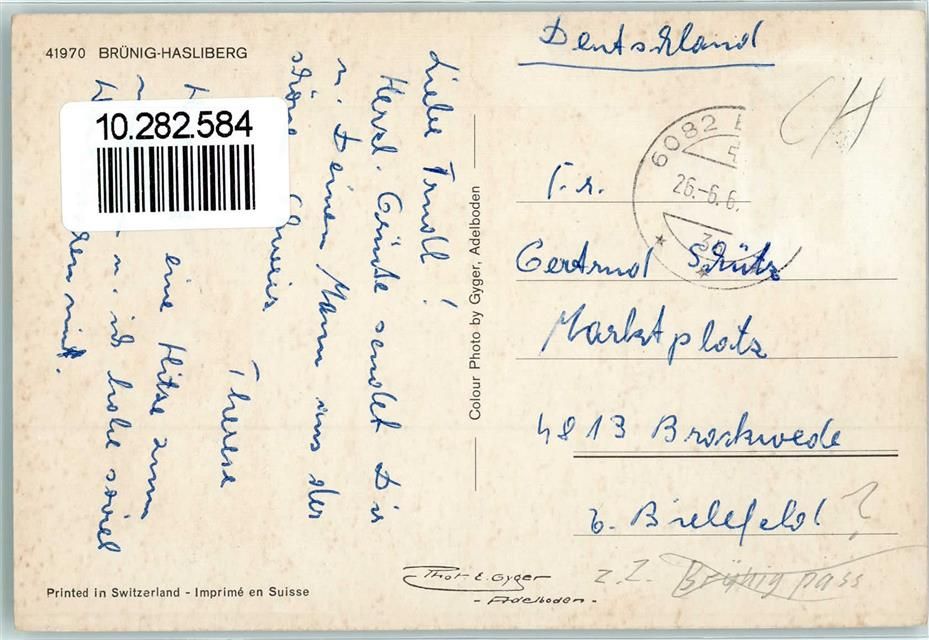 41970 BRÜNIG-HASLIBERG
10.282.584
Liebe Trudl!
Herzl. Grüße sendet Dir
u. Deinem Mann aus der
schöne Schweiz
Therese
eine Hitze zum
u. ich habe soviel
Colour Photo by Gyger, Adelboden
Deutschland
CH
6082
26.-6.6.
Fr.
Gertrud Schütz
Marktplatz
4813 Brackwede
b. Bielefeld ?
z.Z. Brünig pass
Phot. E. Gyger
- Adelboden -
Printed in Switzerland - Imprimé en Suisse